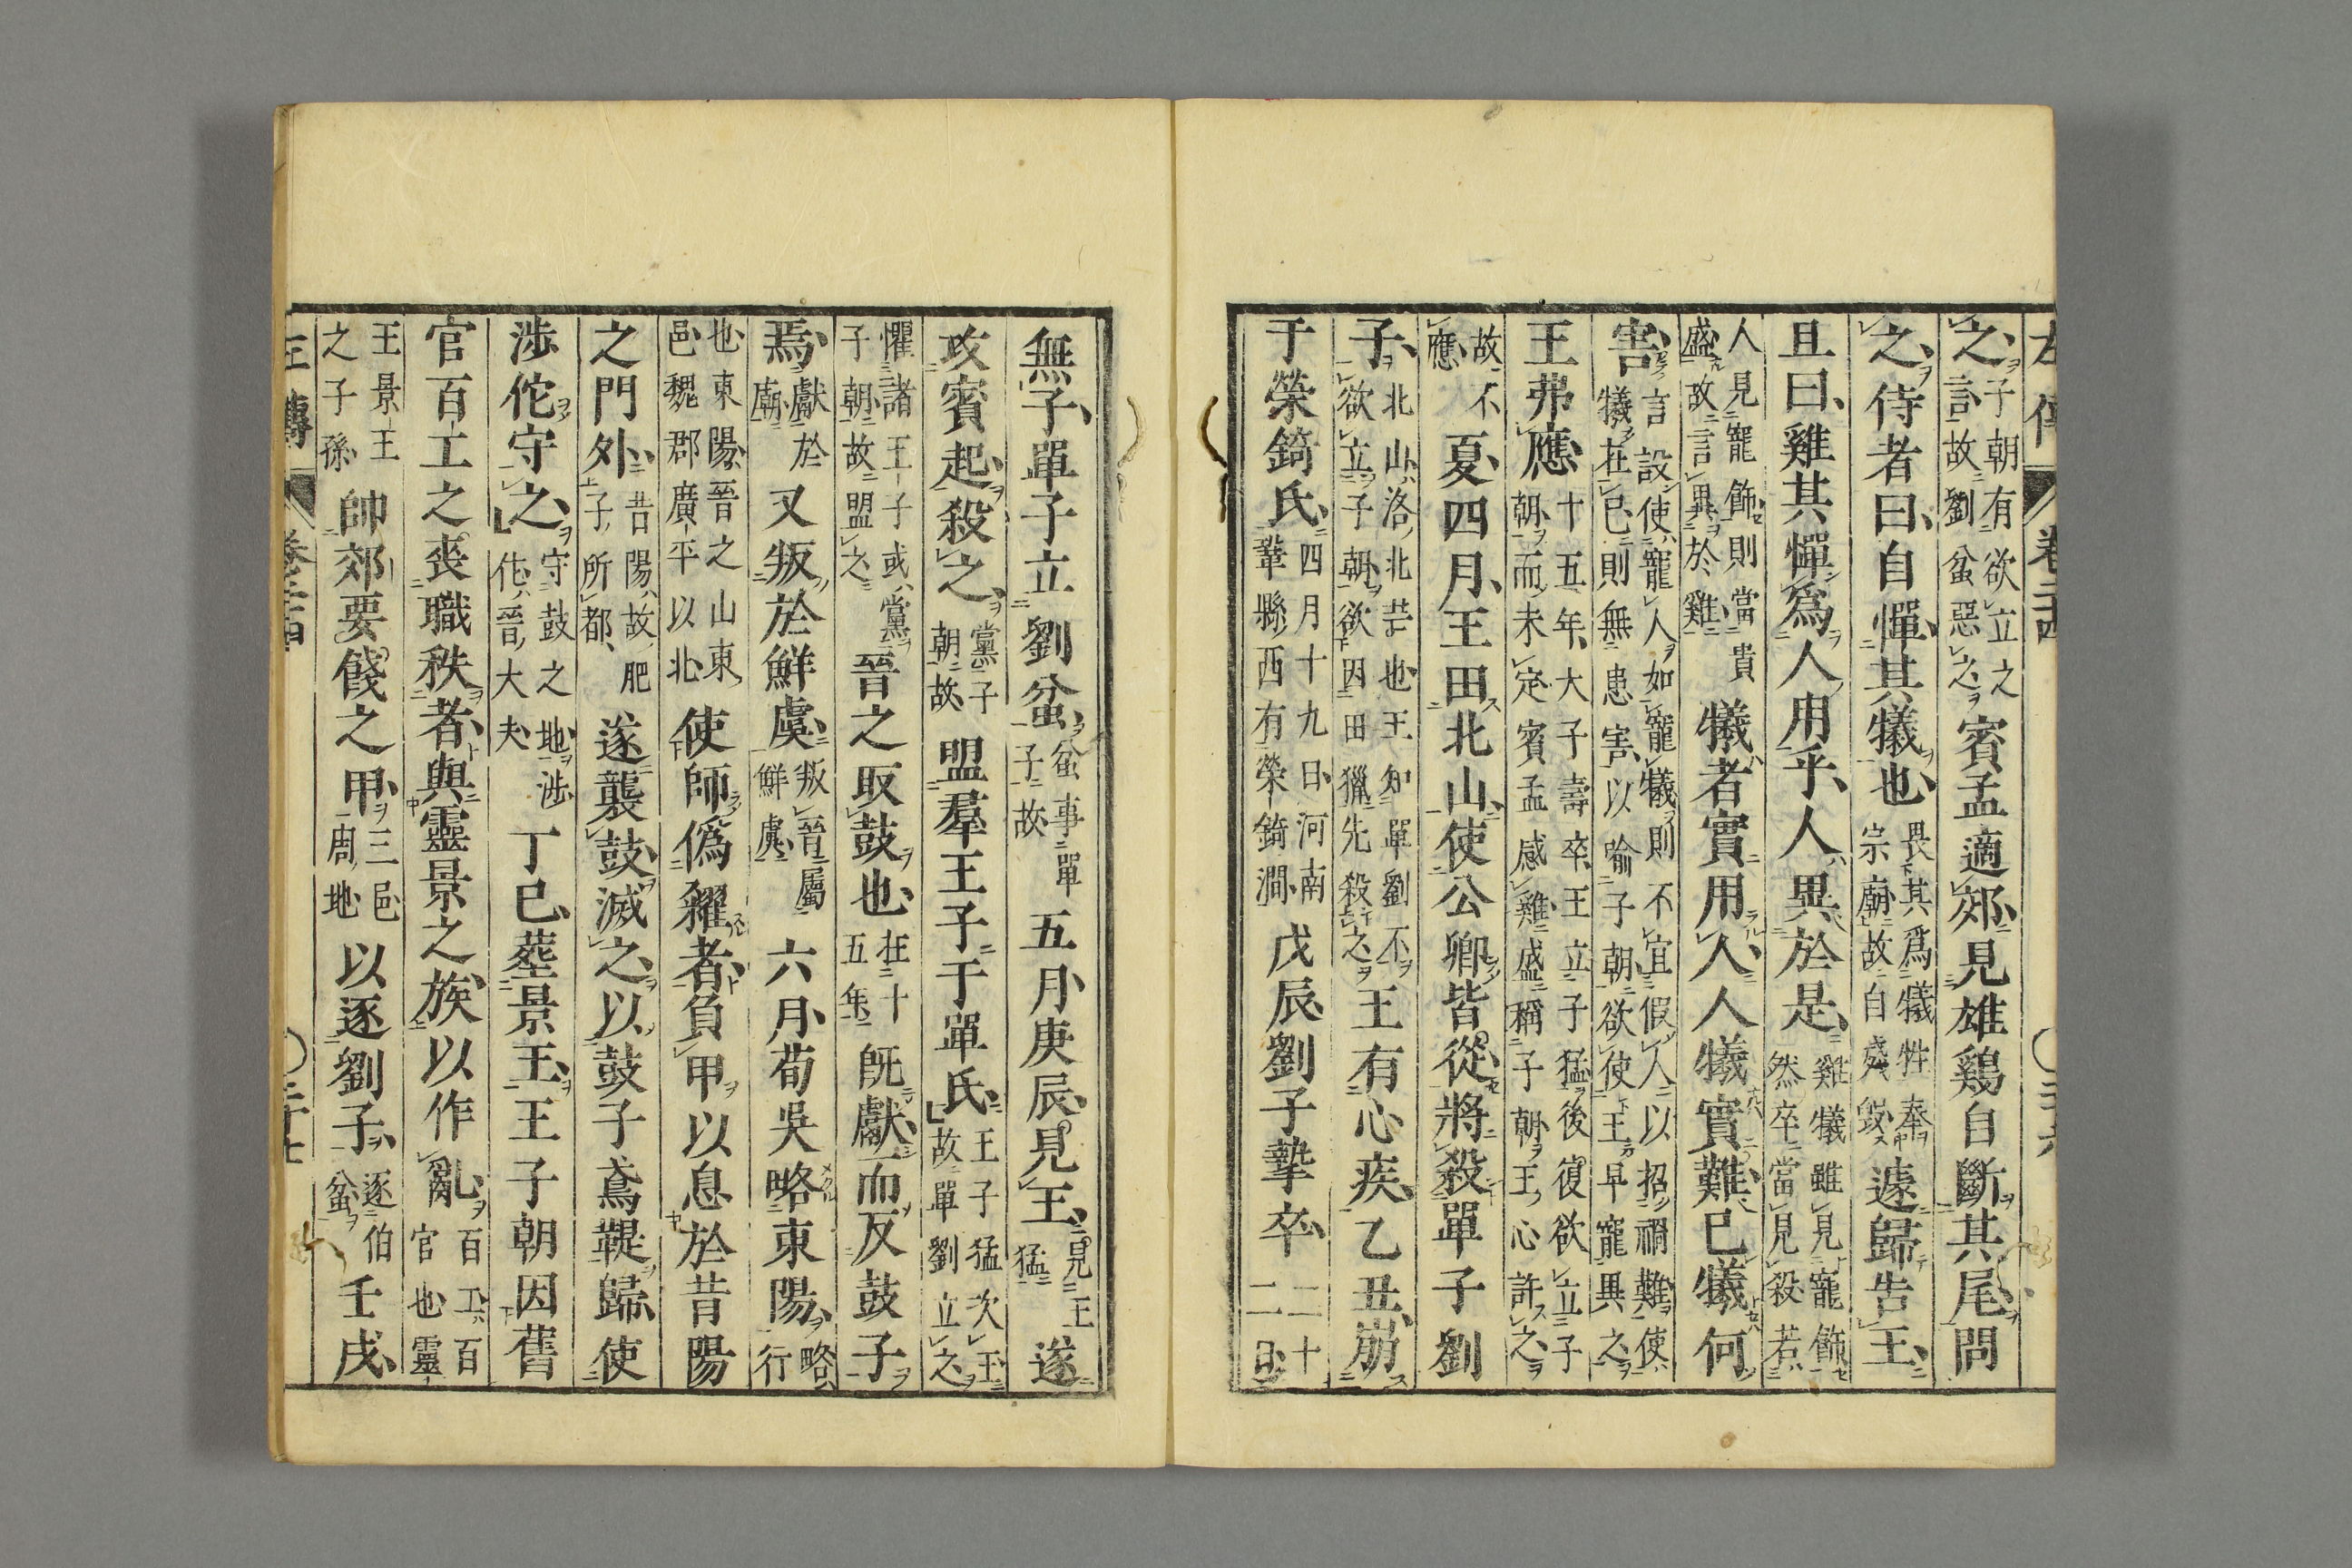 之子朝有欲立之言故劉蚠惡之賓孟適郊見雄鷄自斷其尾問
之侍者曰自憚其犧也畏其爲犧牲奉宗廟故自殘毀遽歸告王
且曰雞其憚爲人用乎人異於是雞犧雖見寵飾然卒當見殺若
人見寵飾則當貴盛故言異於雞犧者實用人人犧實難已犧何
害言設使寵人如寵犧則不宜假人以招禍難使犧在已則無患害以喻子朝欲使王早寵異之
王弗應十五年大子壽卒王立子猛後復欲立子朝而未定賓孟感雞盛稱子朝王心許之
故不應夏四月王田北山使公卿皆從將殺單子劉
子北山洛北芒也王知單劉不欲立子朝欲因田獵先殺之王有心疾乙丑崩
于榮錡氏四月十九日河南鞏縣西有榮錡澗戊辰劉子摯卒二十二日
無子單子立劉蚠蚠事單子故五月庚辰見王見王猛遂
攻賓起殺之黨子朝故盟羣王子于單氏王子猛次王故單劉立之
懼諸王子或黨子朝故盟之晉之取鼓也在十五年旣獻而反鼓子
焉獻於廟又叛於鮮虞叛晉屬鮮虞六月荀吳略東陽略行
也東陽晉之山東邑魏郡廣平以北使師僞糴者負甲以息於昔陽
之門外昔陽故肥子所都遂襲鼓滅之以鼓子鳶鞮歸使
涉佗守之守鼓之地涉佗晉大夫丁巳葬景王王子朝因舊
官百工之喪職秩者與靈景之族以作亂百工百官也靈
王景王之子孫帥郊要餞之甲三邑周地以逐劉子逐伯蚠壬戌